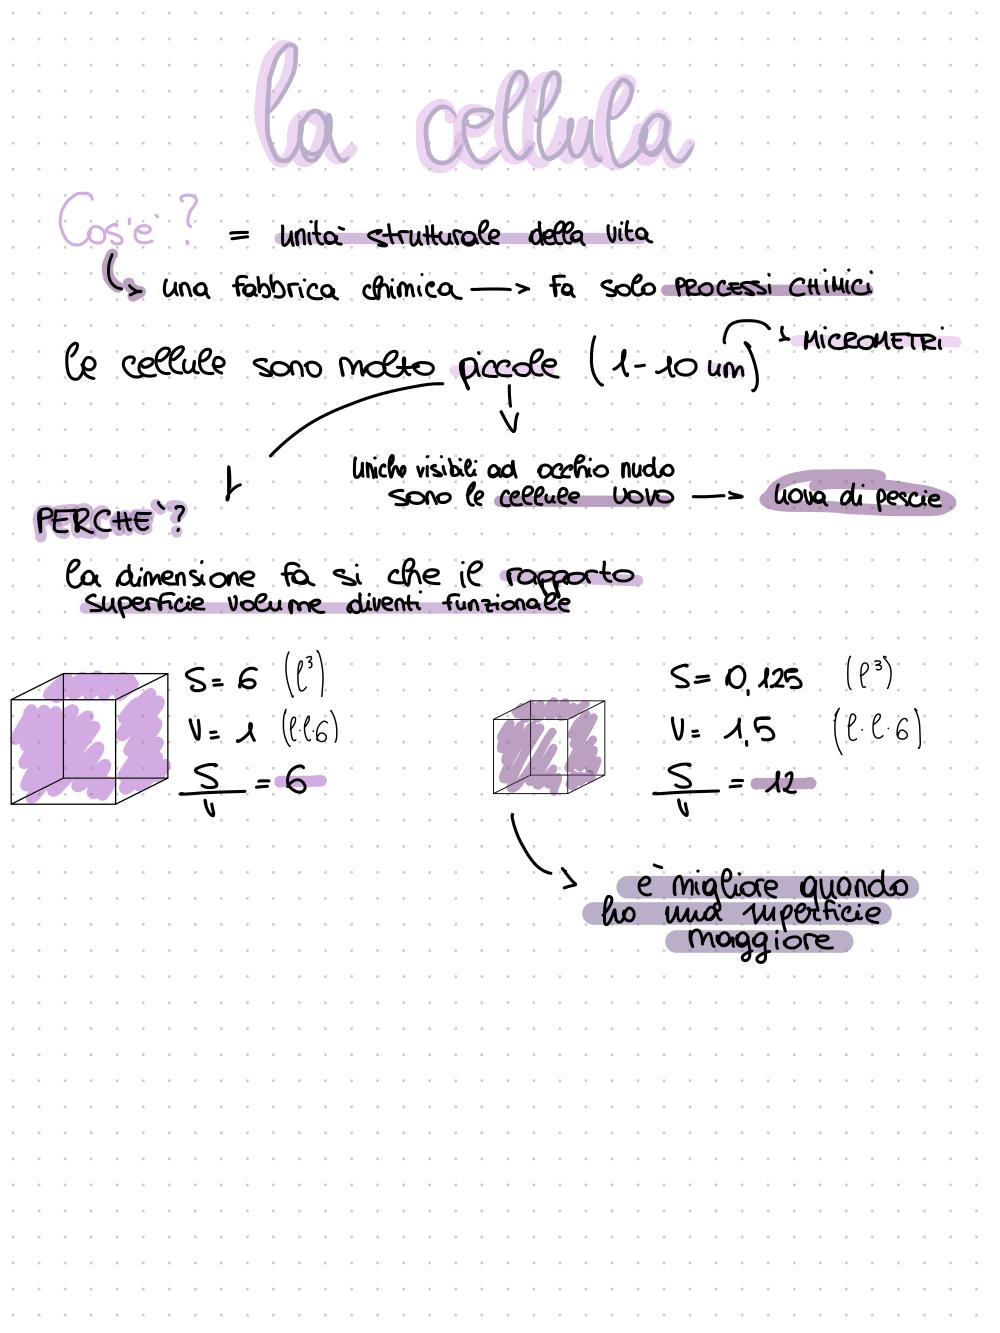 la cellula
Cos'è? = unità strutturale della vita
una fabbrica chimica → fa solo PROCESSI CHIMICI
le cellule sono molto piccole (1-10 um) MICROMETRI
uniche visibili ad occhio nudo
sono le cellule UOVO → uova di pescie
PERCHE`?
la dimensione fa si che il rapporto
superficie volume diventi funzionale
S= 6 (l³)
V= 1 (l·l·6)
S/V = 6
S= 0,125 (l³)
V= 1,5 (l·l·6)
S/V = 12
è migliore quando
ho una superficie
maggiore